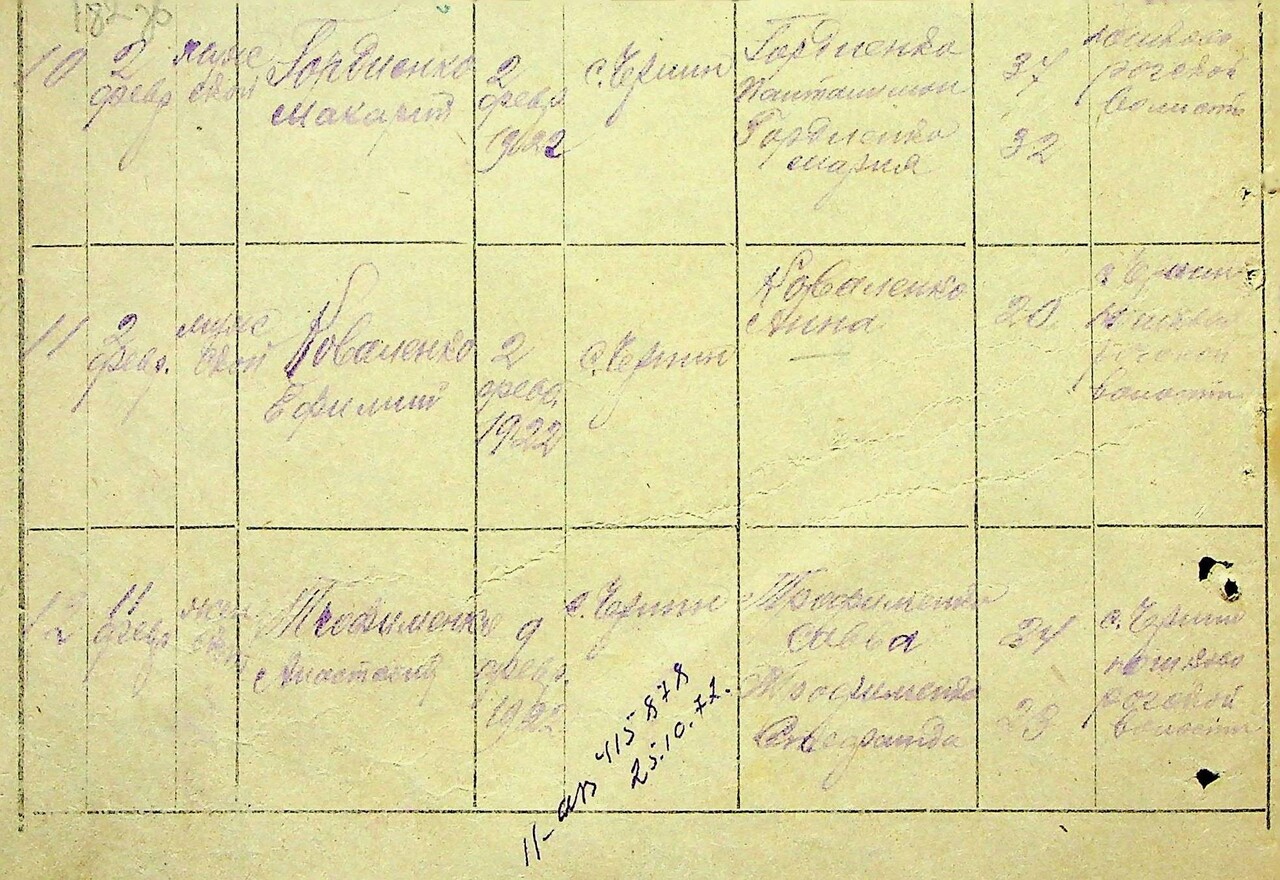 10
2
февр
муж
ской
Гордиенко
Макарий
2
февр
1922
с. Черин
Гордиенко
Гордиенко
Мария
37
32
волости
11
2
февр.
муж
ской
Коваленко
Ефимий
2
февр.
1922
с. Черин
Коваленко
Анна
20
с. Черин
волости
12
11
февр
жен
ский
Трофименко
Анастасия
9
февр.
1922
с. Черин
Трофименко
Савва
Трофименко
34
29
с. Черин
волости
II-ап 415878
25.10.77.